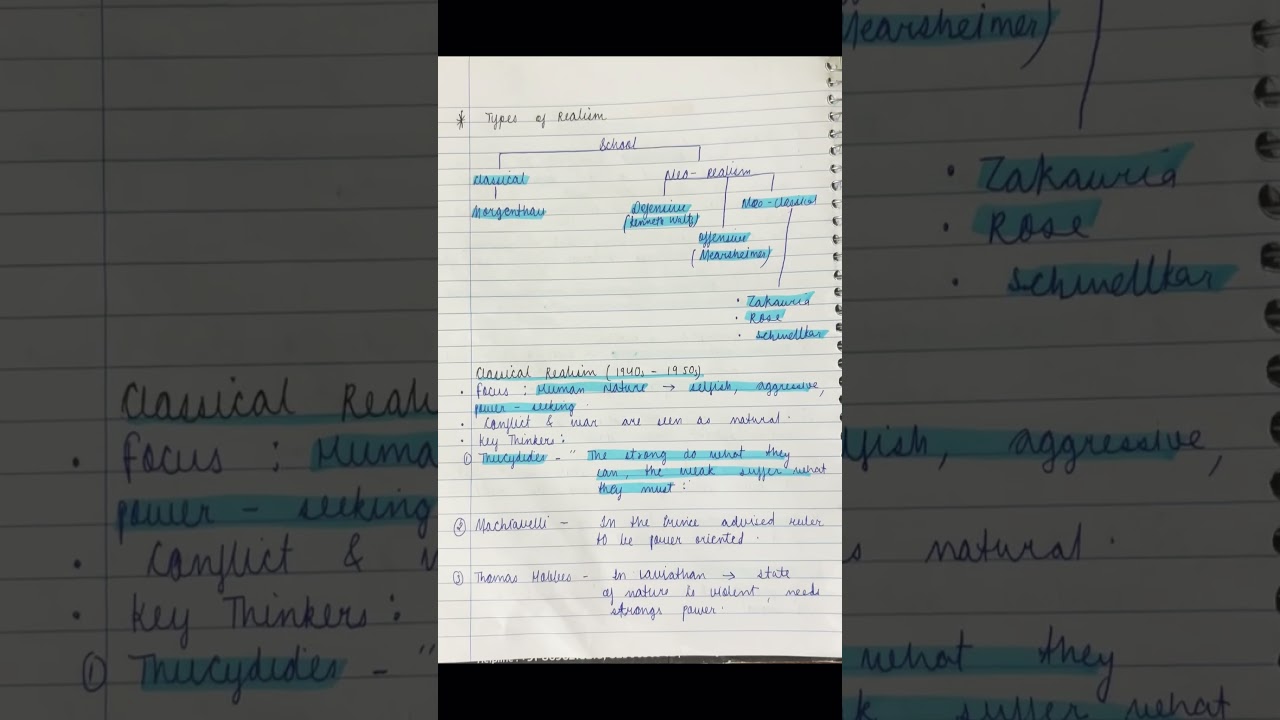 * Types of Realism
School
Classical
Neo-realism
Morgenthau
Defensive
(Kenneth Waltz)
Neo-classical
Offensive
(Mearsheimer)
• Zakauria
• Rose
• Schwellkar
Classical Realism (1940s - 1950s)
• Focus : Human Nature → selfish, aggressive,
power-seeking.
• Conflict & war are seen as natural.
• Key Thinkers:
① Thucydides - "The strong do what they
can, the weak suffer what
they must."
② Machiavelli - In the Prince adviced ruler
to be power oriented.
③ Thomas Hobbes - In Laviathan → state
of nature is violent, needs
strongs power.